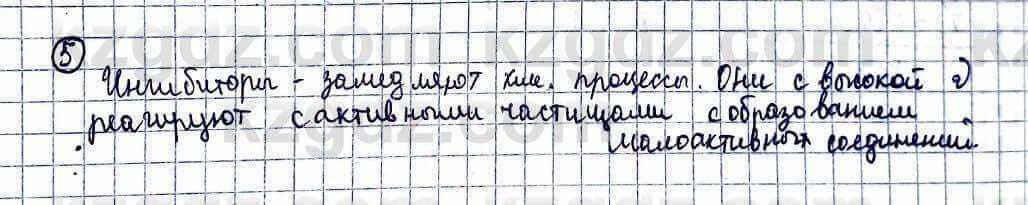 ⑤
Ингибиторы - замедляют хим. процессы. Они с высокой υ
реагируют с активными частицами с образованием
малоактивных соединений.